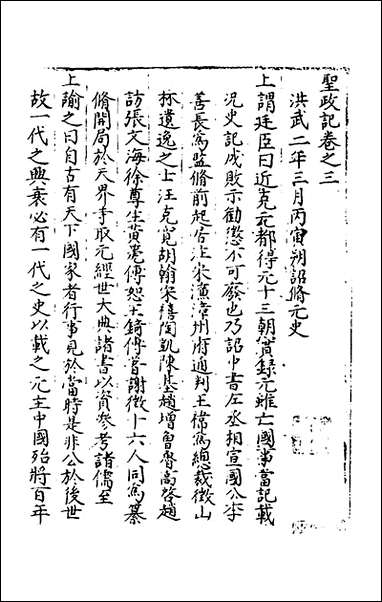 聖政記卷之三
洪武二年三月丙寅朔詔脩元史
上謂廷臣曰近克元都得元十三朝實録元雖亡國事當記載
况史記成敗示勸懲不可廢也乃詔中書左丞相宣國公李
善長爲監脩前起居注宋濂漳州府通判王禕爲總裁徵山
林遺逸之士汪克寛胡翰宋禧陶凱陳基趙壎曾魯高啓趙
訪張文海徐尊生黃箎傅恕王錡傅著謝徽十六人同爲纂
脩開局於天界寺取元經世大典諸書以資參考諸儒至
上諭之曰自古有天下國家者行事見於當時是非公於後世
故一代之興衰必有一代之史以載之元主中國殆將百年